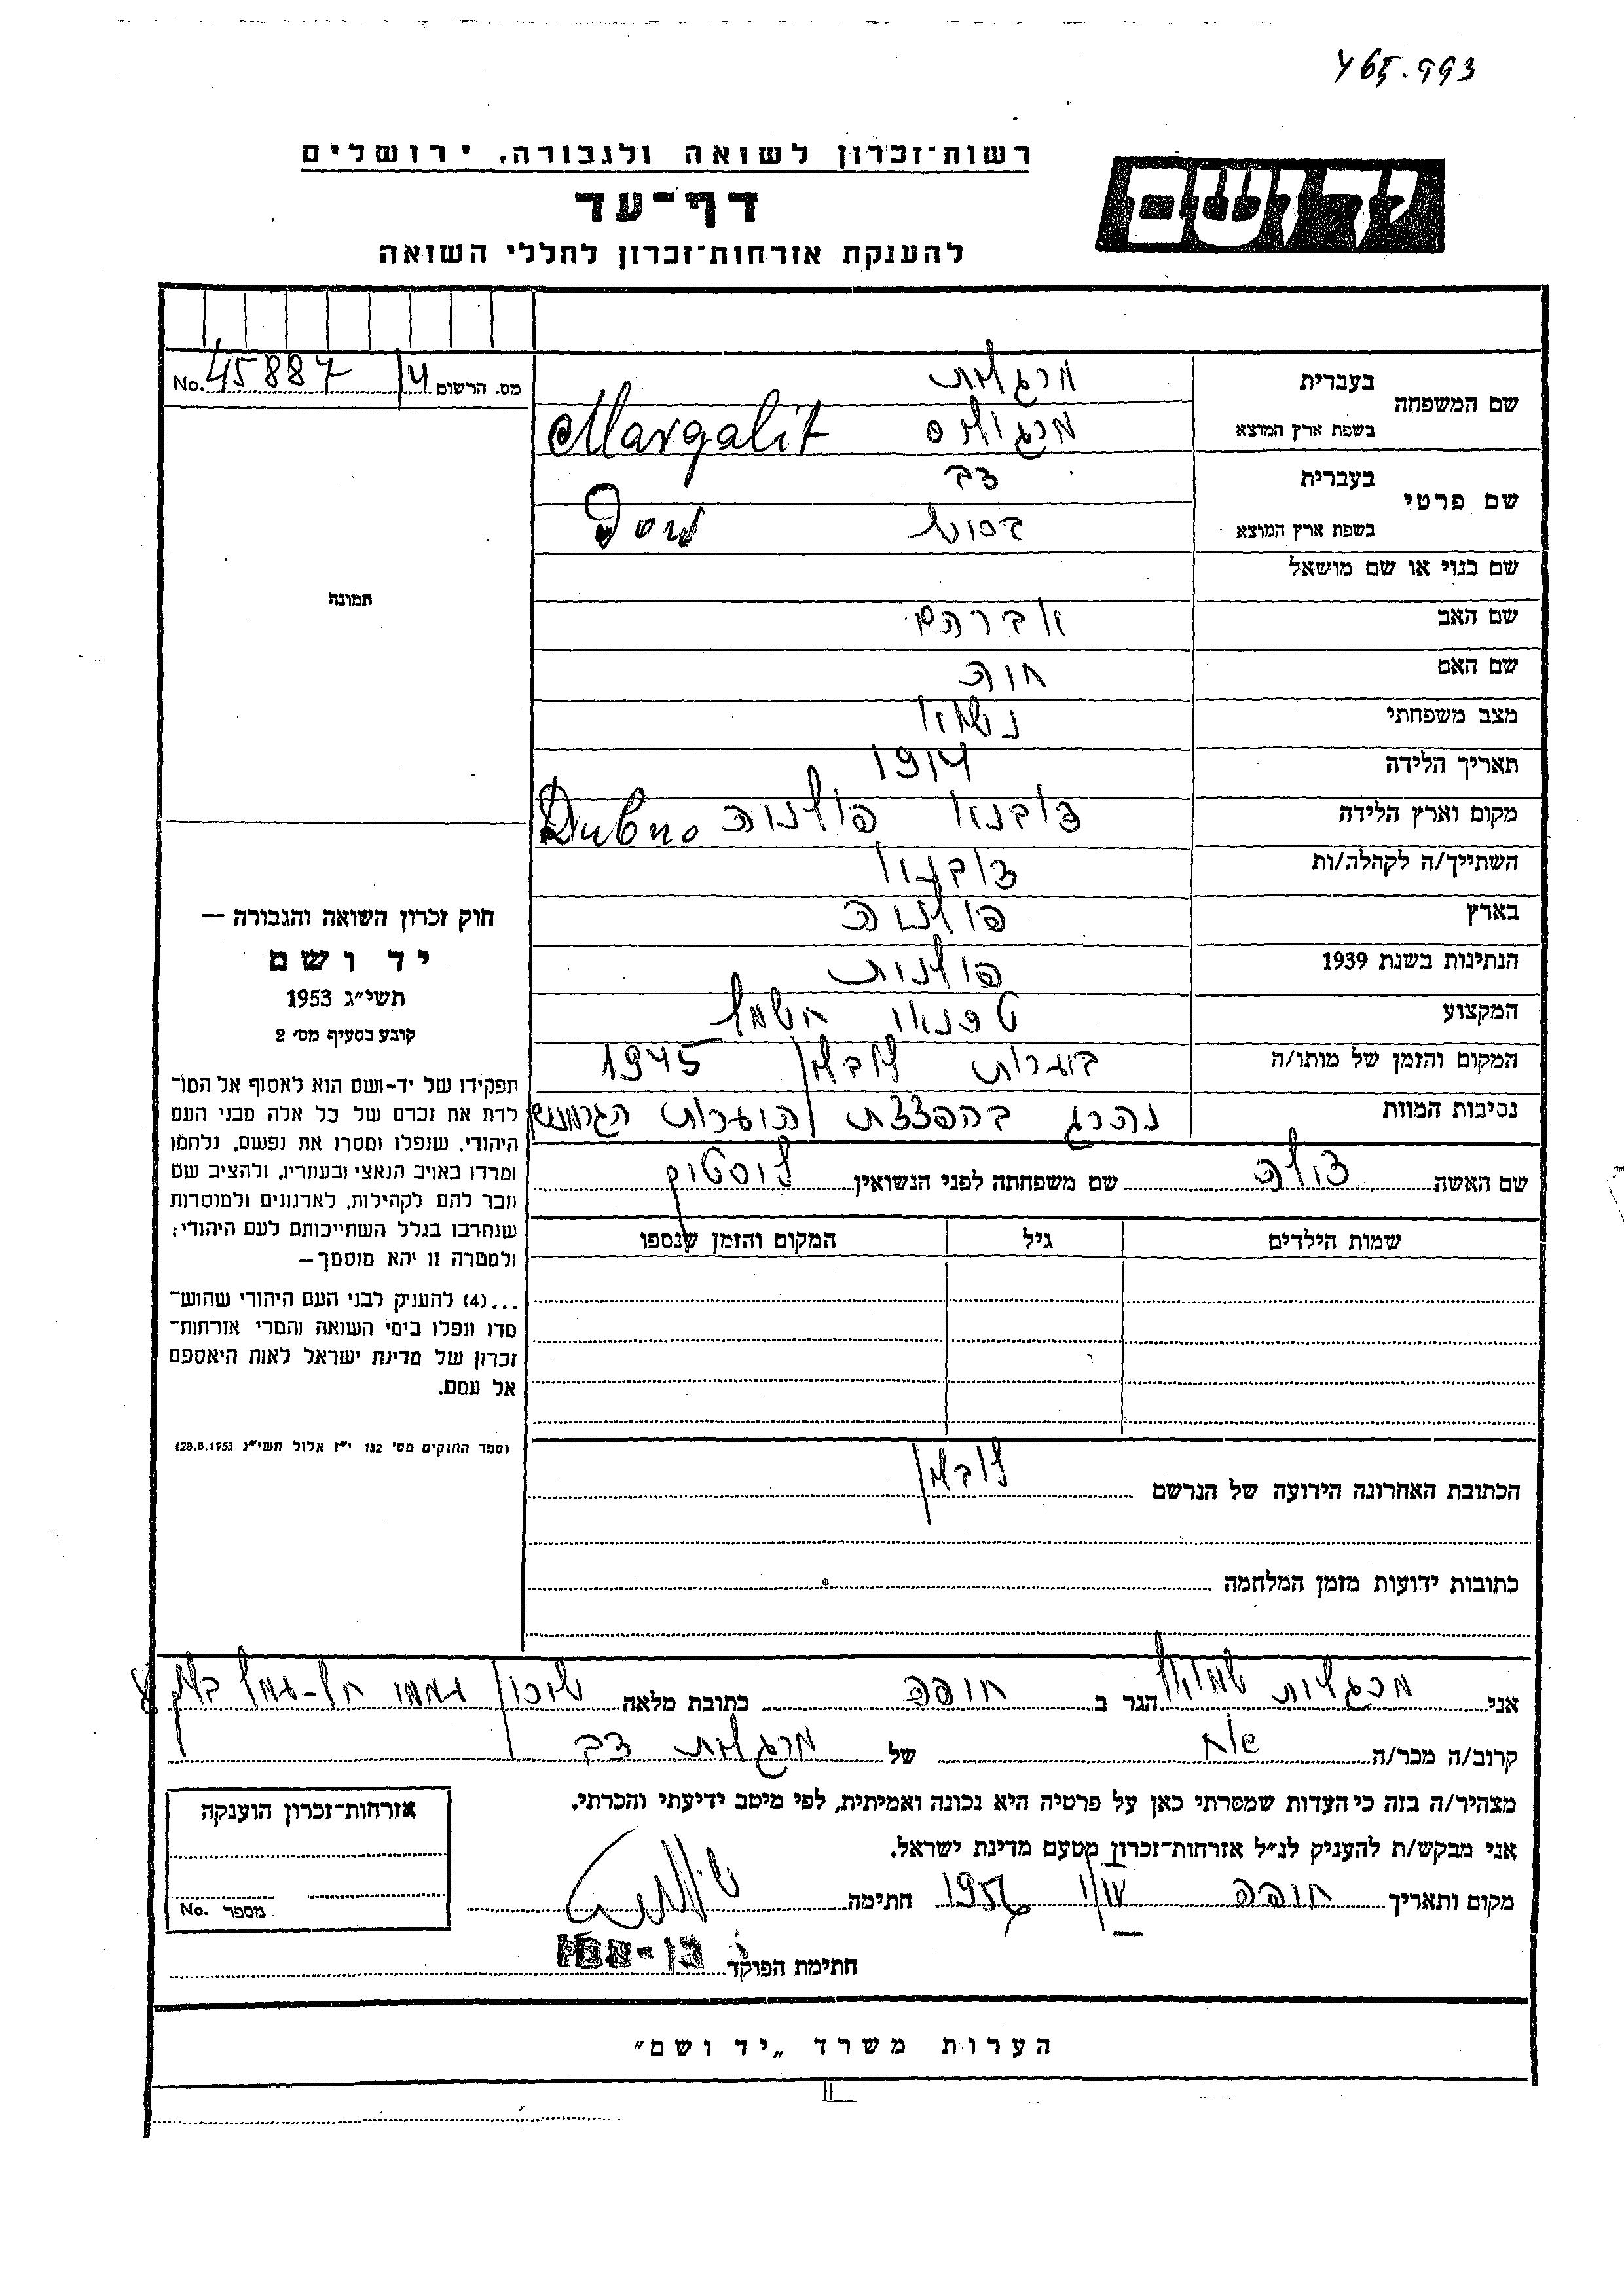 465.993
רשות־זכרון לשואה ולגבורה, ירושלים
יד ושם
דף־עד
להענקת אזרחות־זכרון לחללי השואה
שם המשפחה
בעברית
מרגלית
בשפת ארץ המוצא
Margalit
שם פרטי
בעברית
דב
בשפת ארץ המוצא
שם כנוי או שם מושאל
שם האב אברהם
שם האם חוה
מצב משפחתי נשוי
תאריך הלידה 1914
מקום וארץ הלידה דובנא פולניה Dubno
השתייך/ה לקהלה/ות דובנא
בארץ פולניה
הנתינות בשנת 1939 פולנית
המקצוע חשמל
המקום והזמן של מותו/ה לובלין 1945
נסיבות המוות נהרג בהפצצת
שם האשה שם משפחתה לפני הנשואין
שמות הילדים גיל המקום והזמן שנספו
הכתובת האחרונה הידועה של הנרשם
כתובות ידועות מזמן המלחמה
מס. הרשום 4 No. 45887
תמונה
חוק זכרון השואה והגבורה —
יד ושם
תשי״ג 1953
קובע בסעיף מס׳ 2
תפקידו של יד-ושם הוא לאסוף אל המו־
לדת את זכרם של כל אלה מבני העם
היהודי, שנפלו ומסרו את נפשם, נלחמו
ומרדו באויב הנאצי ובעוזריו, ולהציב שם
וזכר להם לקהילות, לארגונים ולמוסדות
שנחרבו בגלל השתייכותם לעם היהודי;
ולמטרה זו יהא מוסמך—
...(4) להענק לבני העם היהודי שהוש־
מדו ונפלו בימי השואה והמרי אזרחות־
זכרון של מדינת ישראל לאות היאספם
אל עמם.
(ספר החוקים מס׳ 132 י״ז אלול תשי״ג 28.8.1953)
אני מרגלית שמואל הגר ב חיפה כתובת מלאה שיכון
קרוב/ה מכר/ה אח של מרגלית דב
מצהיר/ה בזה כי העדות שמסרתי כאן על פרטיה היא נכונה ואמיתית, לפי מיטב ידיעתי והכרתי.
אני מבקש/ת להעניק לנ״ל אזרחות־זכרון מטעם מדינת ישראל.
מקום ותאריך חיפה חתימה
חתימת הפוקד
אזרחות־זכרון הוענקה
מספר No.
הערות משרד „יד ושם״